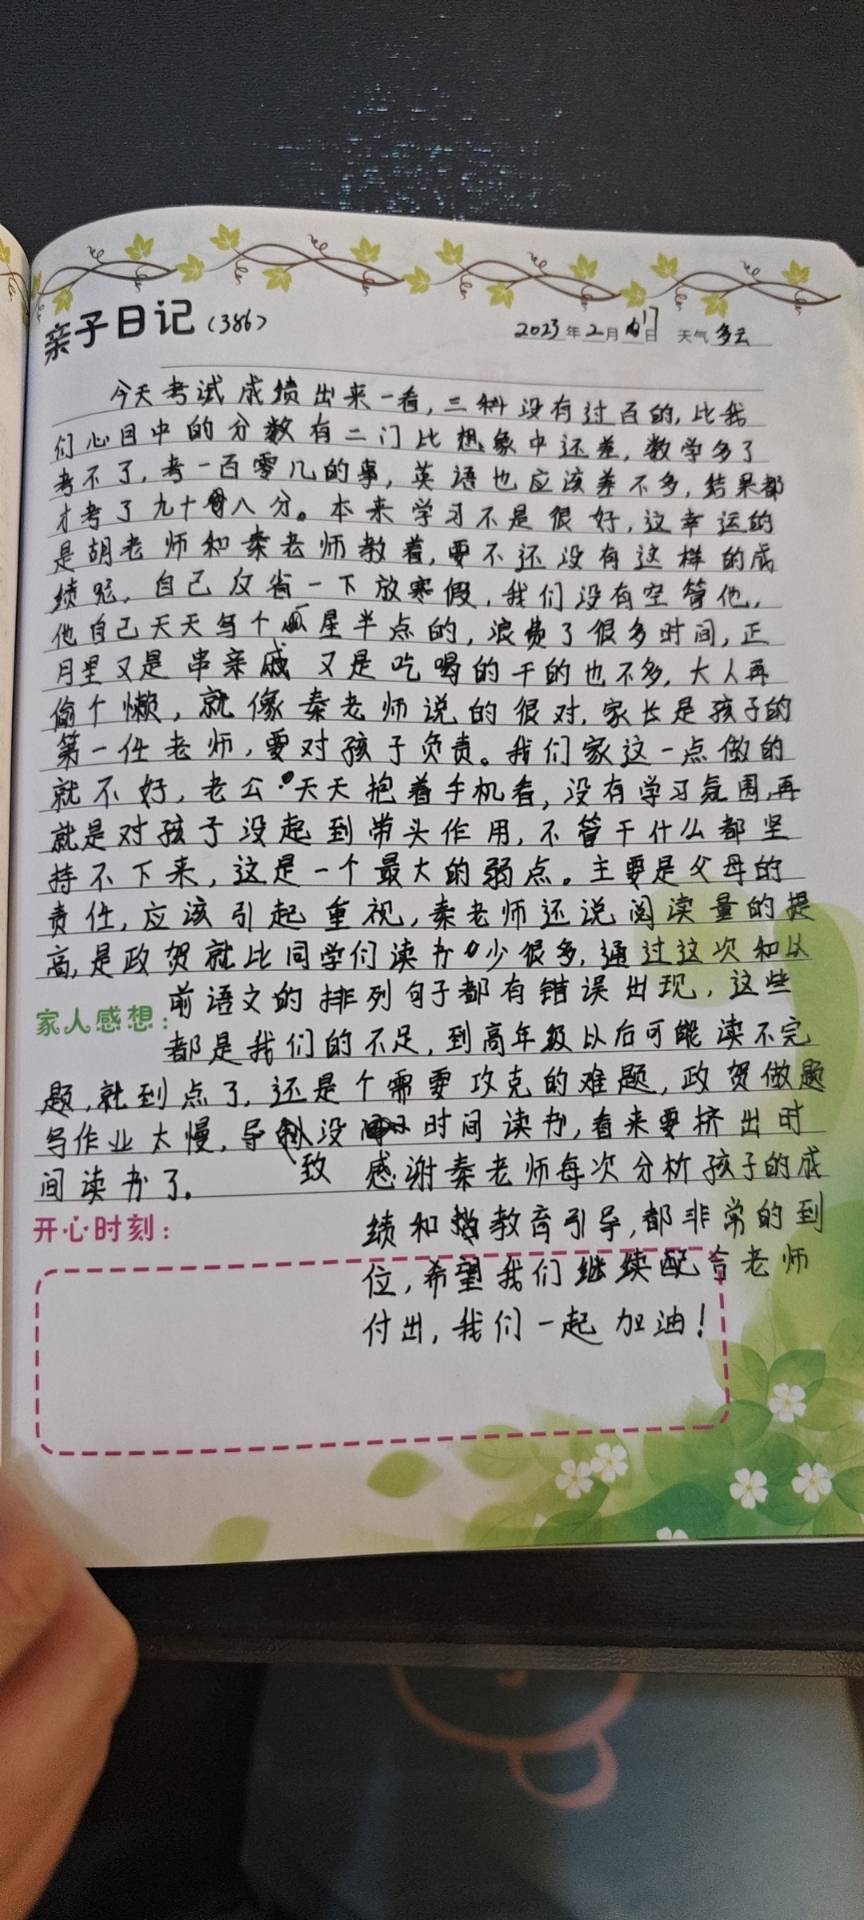 亲子日记(386)
2023年2月17日 天气 多云
今天考试成绩出来一看,三科没有过百的,比我
们心目中的分数有二门比想象中还差,数学多了
考不了,考一百零几的事,英语也应该差不多,结果都
才考了九十八分。本来学习不是很好,这幸运的
是胡老师和秦老师教着,要不还没有这样的成
绩呢,自己反省一下放寒假,我们没有空管他,
他自己天天写个星半点的,浪费了很多时间,正
月里又是串亲戚又是吃喝的干的也不多,大人再
偷个懒,就像秦老师说的很对,家长是孩子的
第一任老师,要对孩子负责。我们家这一点做的
就不好,老公天天抱着手机看,没有学习氛围,再
就是对孩子没起到带头作用,不管干什么都坚
持不下来,这是一个最大的弱点。主要是父母的
责任,应该引起重视,秦老师还说阅读量的提
高,是政贺就比同学们读书少很多,通过这次和以
家人感想:
前语文的排列句子都有错误出现,这些
都是我们的不足,到高年级以后可能读不完
题,就到点了,还是个需要攻克的难题,政贺做题
写作业太慢,导致没时间读书,看来要挤出时
间读书了。
感谢秦老师每次分析孩子的成
开心时刻:
绩和教育引导,都非常的到
位,希望我们继续配合老师
付出,我们一起加油!